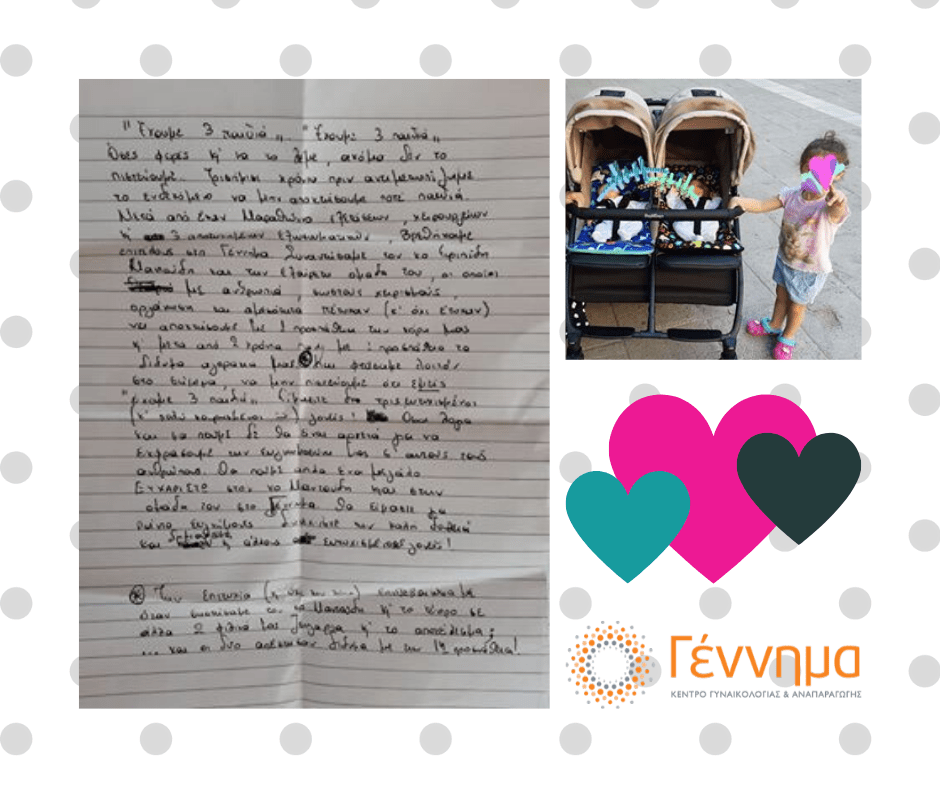 "Έχουμε 3 παιδιά,, "Έχουμε 3 παιδιά,,
Όσες φορές κι' να το λέμε, ακόμα δεν το
πιστεύουμε. Τρισήμισι χρόνια πριν αντιμετωπίζαμε
το ενδεχόμενο να μην αποκτήσουμε ποτέ παιδιά.
Μετά από έναν Μαραθώνιο εξετάσεων, χειρουργείων
κι' 3 αποτυχημένων εξωσωματικών, βρεθήκαμε
επιτέλους στο Γέννημα. Συναντήσαμε τον κο Ευριπίδη
Μαντούδη και την εξαίρετη ομάδα του, οι οποίοι
με ανθρωπιά, σωστούς χειρισμούς,
οργάνωση και πέτυχαν (κ' ότι έτυχαν)
να αποκτήσουμε με 1 προσπάθεια την κόρη μας
κι' μετά από 2 χρόνια πάλι με 1 προσπάθεια τα
δίδυμα αγοράκια μας. Και φτάσαμε λοιπόν
στο σήμερα, να μην πιστεύουμε ότι εμείς
"έχουμε 3 παιδιά,, Είμαστε δυο τρισευτυχισμένοι
(κ' πολύ κουρασμένοι) γονείς! Όσα λόγια
και να πούμε δε θα είναι αρκετά για να
εκφράσουμε την ευγνωμοσύνη μας σ' αυτούς τους
ανθρώπους. Θα πούμε απλά ένα μεγάλο
ΕΥΧΑΡΙΣΤΩ στον κο Μαντούδη και στην
ομάδα του στο Γέννημα. Θα είμαστε για
πάντα ευγνώμονες. Συνεχίστε την καλή δουλειά
και κι άλλους ευτυχισμένους γονείς!
Την επιτυχία
όταν συστήσαμε τον κο Μαντούδη κι' το κέντρο σε
άλλα 2 φιλικά μας ζευγάρια κι' το αποτέλεσμα;
... και οι δυο απέκτησαν δίδυμα με την 1η προσπάθεια!
Γέννημα
ΚΕΝΤΡΟ ΓΥΝΑΙΚΟΛΟΓΙΑΣ & ΑΝΑΠΑΡΑΓΩΓΗΣ